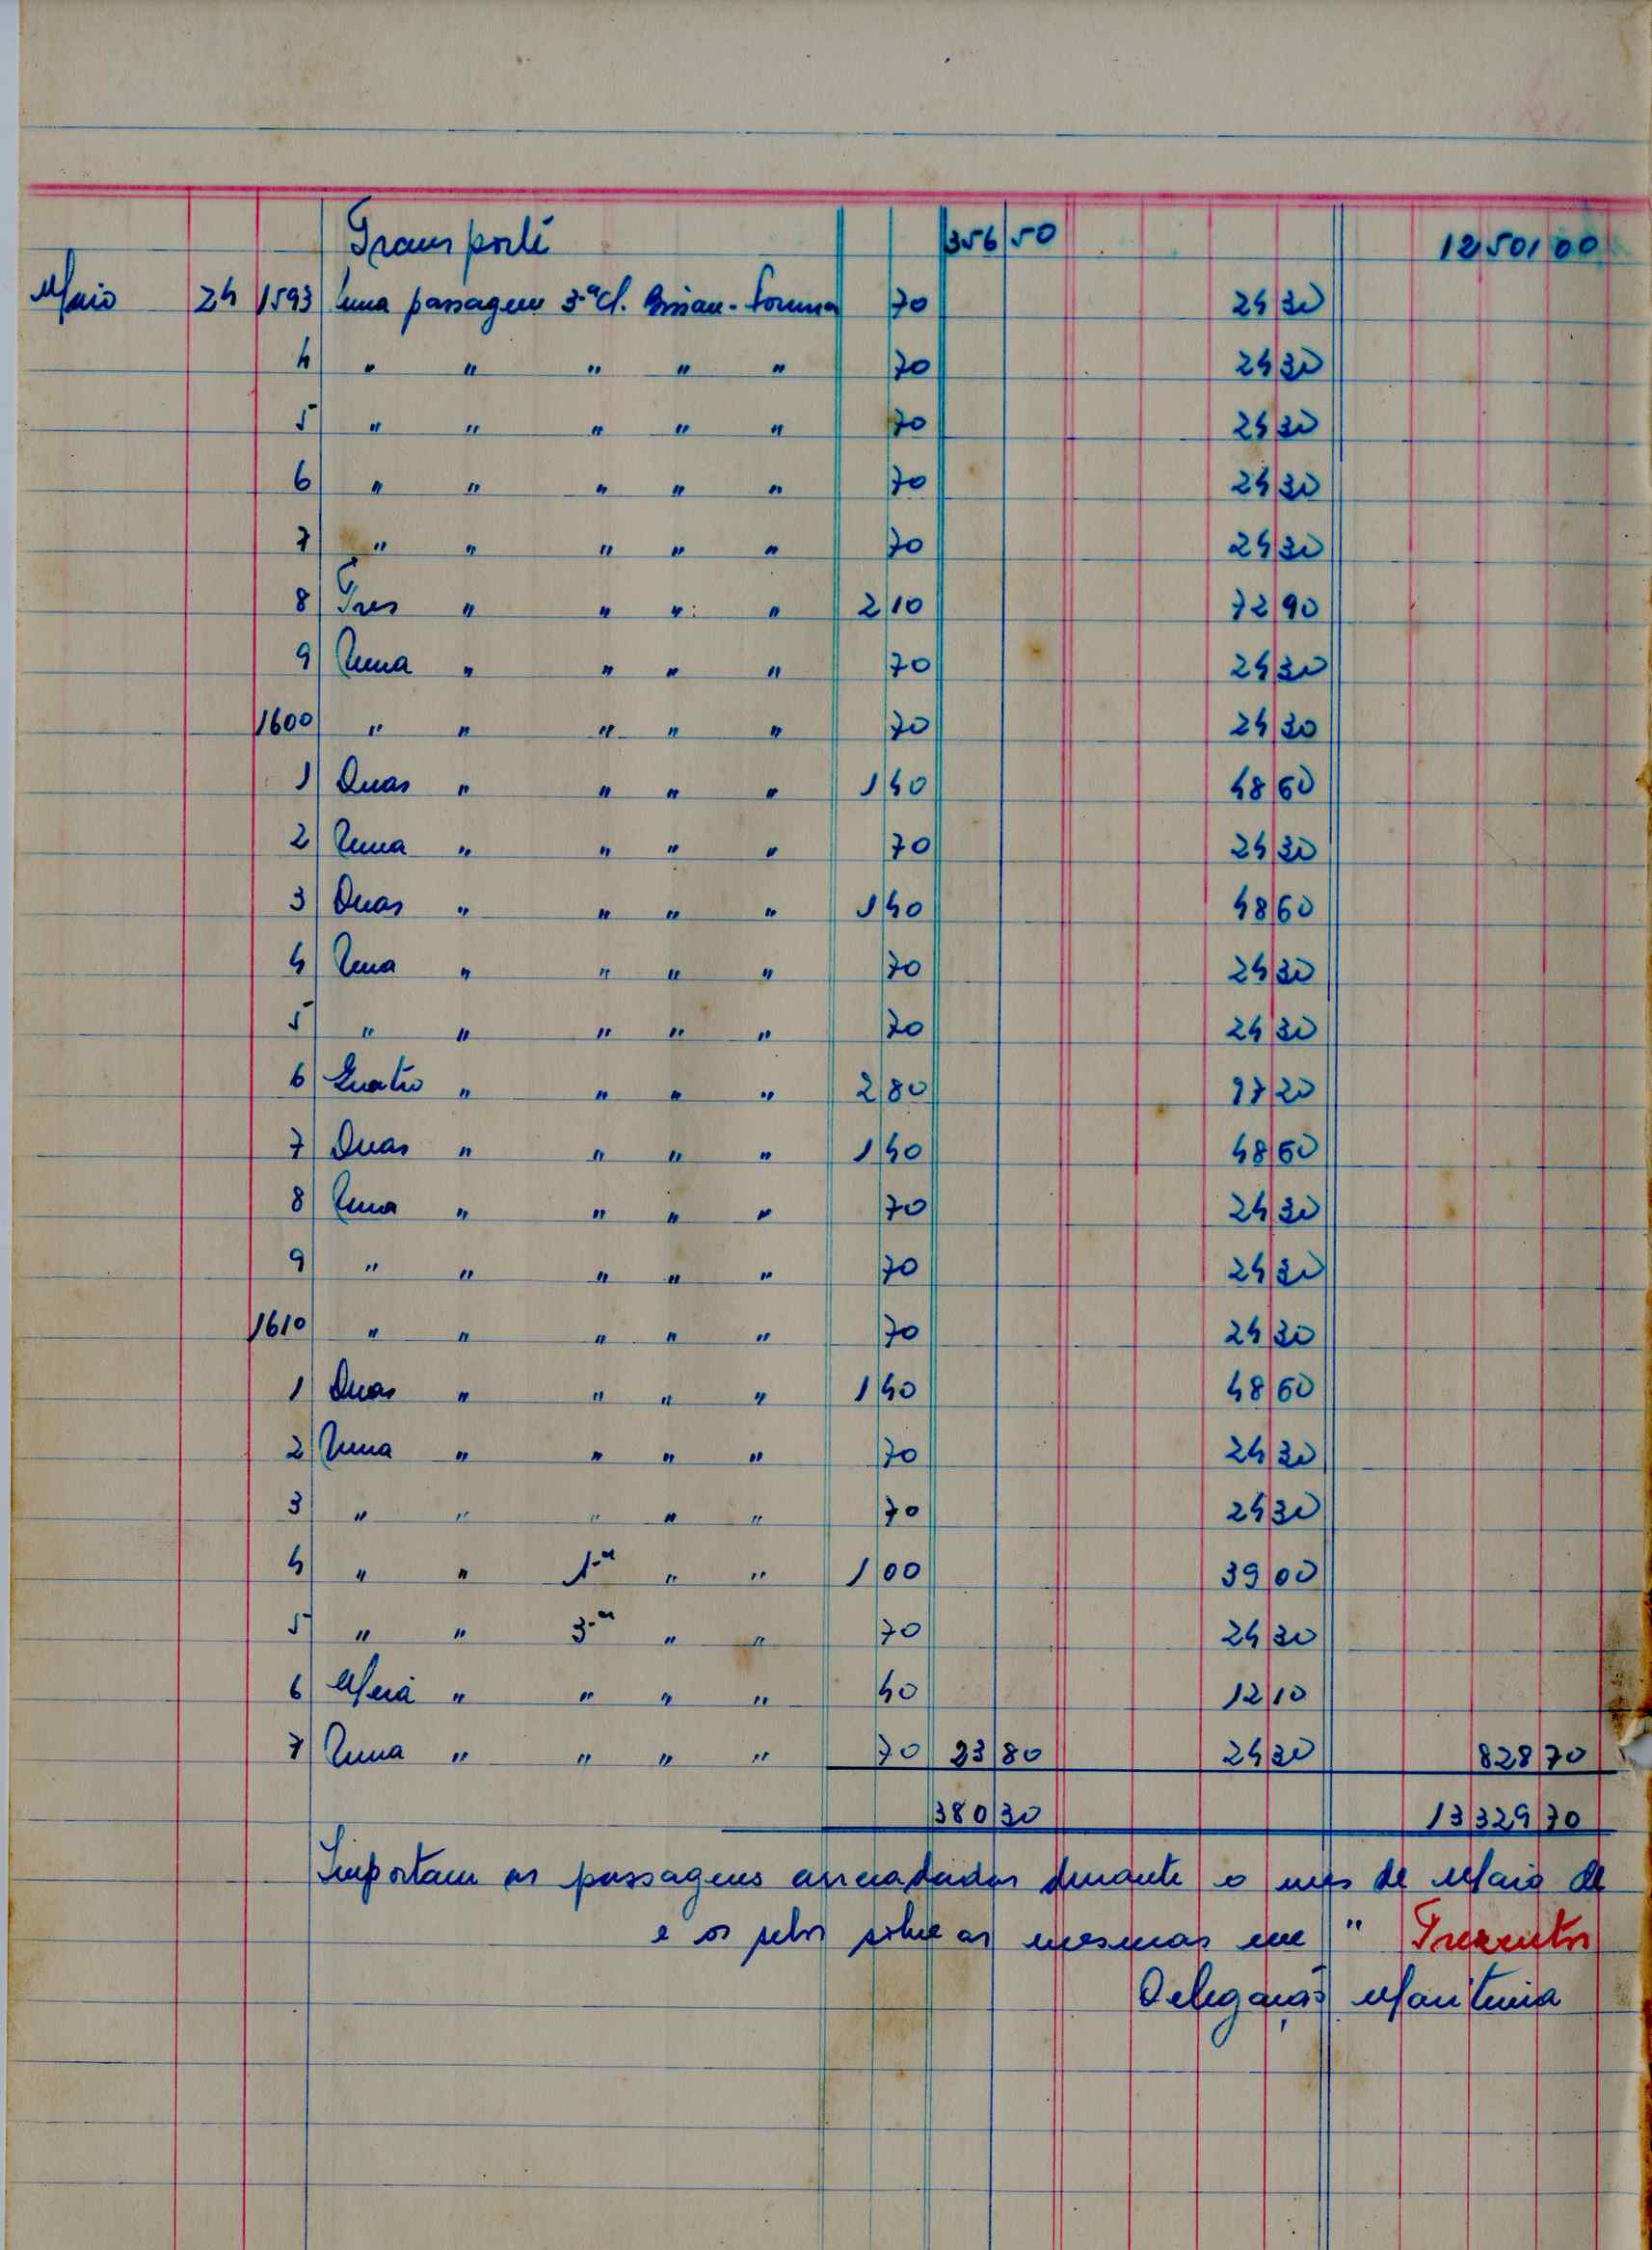 Transporte 356 50 12 501 00
Maio 24 1593 Uma passagem 3.ª cl. Bissau - 70 24 30
4 " " " " " 70 24 30
5 " " " " " 70 24 30
6 " " " " " 70 24 30
7 " " " " " 70 24 30
8 Tres " " " " 2 10 72 90
9 Uma " " " " 70 24 30
1600 " " " " " 70 24 30
1 Duas " " " " 1 40 48 60
2 Uma " " " " 70 24 30
3 Duas " " " " 1 40 48 60
4 Uma " " " " 70 24 30
5 " " " " " 70 24 30
6 Quatro " " " " 2 80 97 20
7 Duas " " " " 1 40 48 60
8 Uma " " " " 70 24 30
9 " " " " " 70 24 30
1610 " " " " " 70 24 30
1 Duas " " " " 1 40 48 60
2 Uma " " " " 70 24 30
3 " " " " " 70 24 30
4 " " 1.ª " " 1 00 39 00
5 " " 3.ª " " 70 24 30
6 Meia " " " " 40 12 10
7 Uma " " " " 70 23 80 24 30 828 70
380 30 13 329 70
Importam as passagens arrecadadas durante o mes de Maio de
e os selos sobre as mesmas em " Trezentos
Delegação Maritima